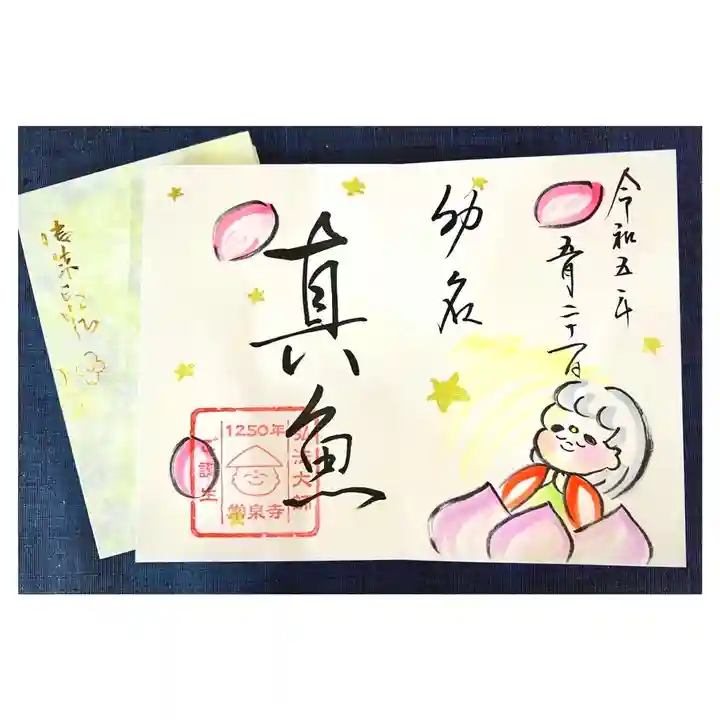 令和五年
五月二十一日
幼名
真魚
弘法大師
1250年
ご誕生
常泉寺